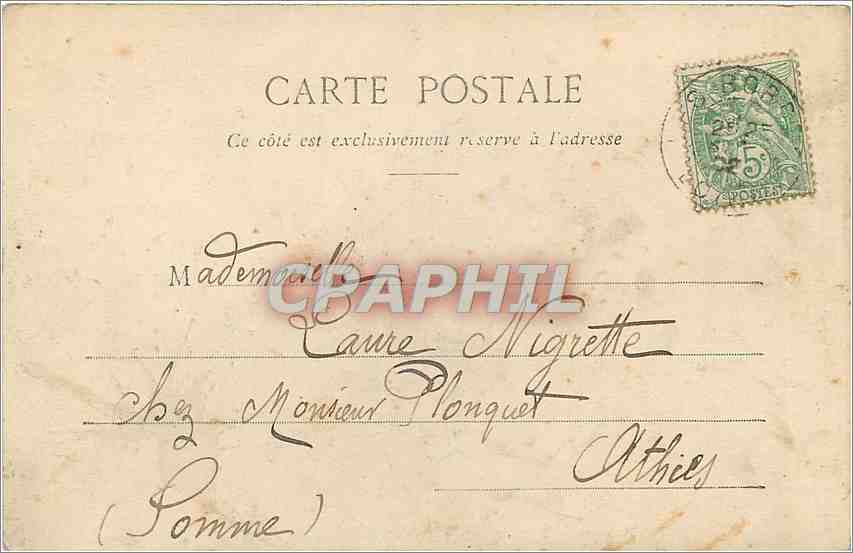 CARTE POSTALE
Ce côté est exclusivement reserve à l'adresse
5c
POSTES
Mademoiselle
CPAPHIL
Laure Nigrette
chez Monsieur Plonquet
Athies
(Somme)